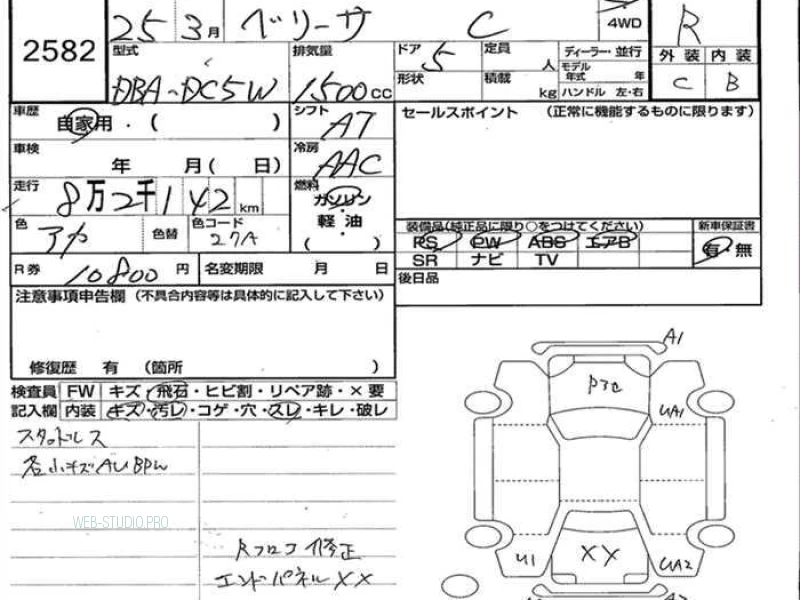 2582
25 3月 ベリーサ C 4WD R
型式 DBA-DC5W
排気量 1500cc
ドア 5
定員 人
形状
積載 kg
ディーラー・並行
モデル年式 年
ハンドル 左・右
外装 内装
C B
車歴 自家用・( )
シフト AT
車検 年 月( 日)
冷房 AAC
走行 8万2千142km
燃料 ガソリン・軽油 ( )
色 アカ 色替 色コード 27A
セールスポイント (正常に機能するものに限ります)
装備品(純正品に限り○をつけてください) 新車保証書
PS PW ABS エアB 有・無
SR ナビ TV
R券 10800円 名変期限 月 日
後日品
注意事項申告欄 (不具合内容等は具体的に記入して下さい)
修復歴 有 (箇所 )
検査員 FW キズ・飛石・ヒビ割・リペア跡・×要
記入欄 内装 キズ・汚レ・コゲ・穴・スレ・キレ・破レ
各小キズAUBPW
WEB-STUDIO.PRO
Rフロコ修正
エンドパネルXX
A1
UA1
U1
XX
UA2